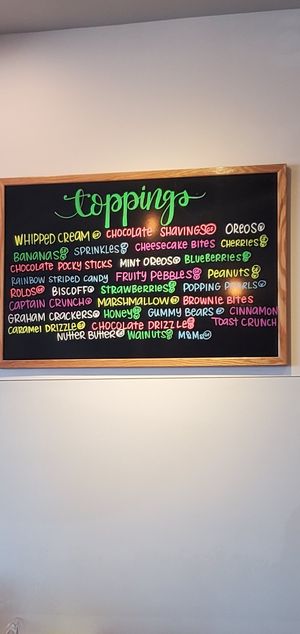 toppings
WHIPPED CREAM CHOCOLATE SHAVINGS OREOS
BANANAS SPRINKLES CHEESECAKE BITES CHERRIES
CHOCOLATE POCKY STICKS MINT OREOS BLUEBERRIES
RAINBOW STRIPED CANDY FRUITY PEBBLES PEANUTS
ROLOS BISCOFF STRAWBERRIES POPPING PEARLS
CAPTAIN CRUNCH MARSHMALLOW BROWNIE BITES
GRAHAM CRACKERS HONEY GUMMY BEARS CINNAMON
CARAMEL DRIZZLE CHOCOLATE DRIZZLE TOAST CRUNCH
NUTTER BUTTER WALNUTS M&Ms